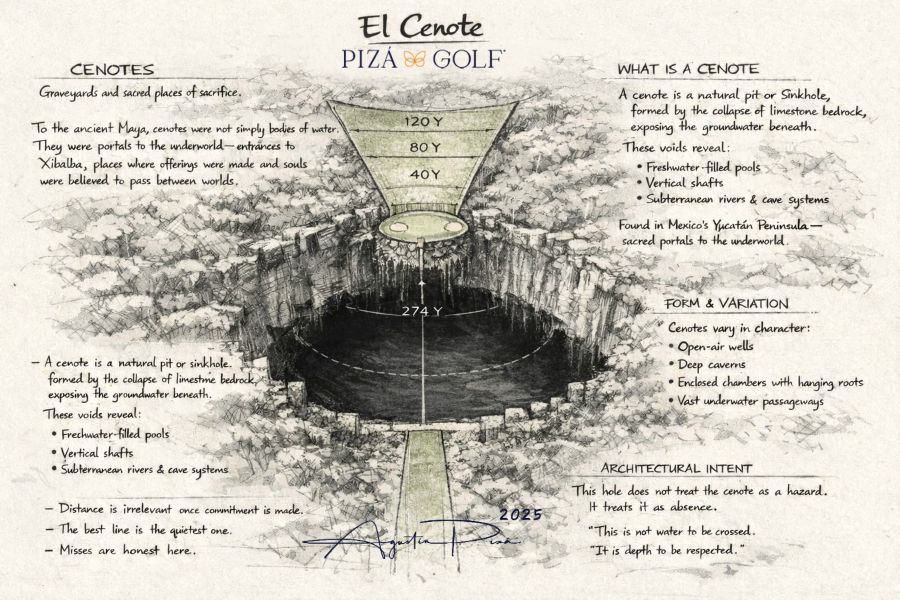 El Cenote
PIZÁ GOLF
CENOTES
Graveyards and sacred places of sacrifice.
To the ancient Maya, cenotes were not simply bodies of water.
They were portals to the underworld—entrances to
Xibalba, places where offerings were made and souls
were believed to pass between worlds.
– A cenote is a natural pit or sinkhole.
formed by the collapse of limestme bedrock,
exposing the groundwater beneath.
These voids reveal:
• Frechwater-filled pools
• Vertical shafts
• Subterranean rivers & cave systems
– Distance is irrelevant once commitment is made.
– The best line is the quietest one.
– Misses are honest here.
120 Y
80 Y
40 Y
274 Y
2025
Agustín Pizá
WHAT IS A CENOTE
A cenote is a natural pit or Sinkhole,
formed by the collapse of limestone bedrock,
exposing the groundwater beneath.
These voids reveal:
• Freshwater-filled pools
• Vertical shafts
• Subterranean rivers & cave systems
Found in Mexico's Yucatán Peninsula—
sacred portals to the underworld.
FORM & VARIATION
Cenotes vary in character:
• Open-air wells
• Deep caverns
• Enclosed chambers with hanging roots
• Vast underwater passageways
ARCHITECTURAL INTENT
This hole does not treat the cenote as a hazard.
It treats it as absence.
"This is not water to be crossed.
"It is depth to be respected."